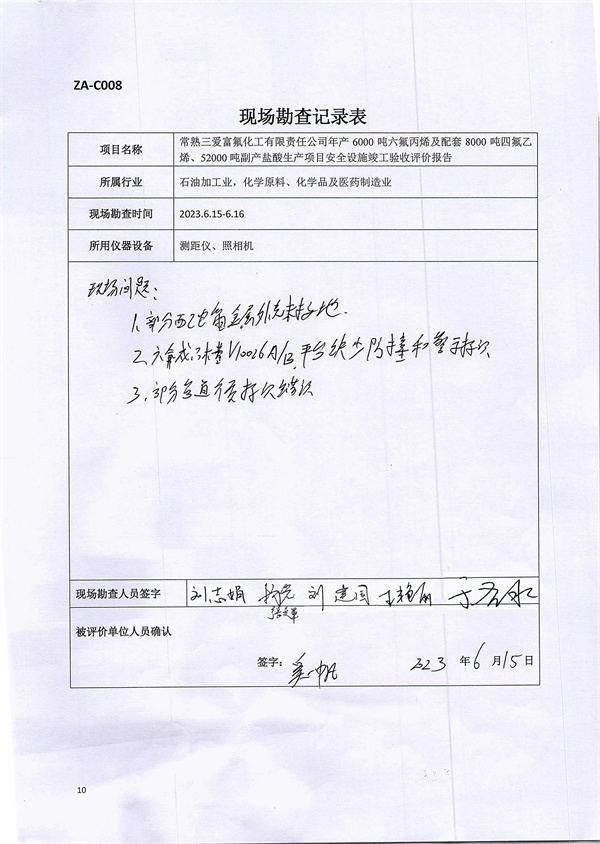 ZA-C008
现场勘查记录表
项目名称
常熟三爱富氟化工有限责任公司年产 6000 吨六氟丙烯及配套 8000 吨四氟乙
烯、52000 吨副产盐酸生产项目安全设施竣工验收评价报告
所属行业
石油加工业，化学原料、化学品及医药制造业
现场勘查时间
2023.6.15-6.16
所用仪器设备
测距仪、照相机
现场问题：
1、部分配电箱金属外壳未接地.
2、六氟成品槽V10026A/B,平台缺少防撞和警示标识
3、部分管道介质标识错误
现场勘查人员签字
刘志娟 刘建国
被评价单位人员确认
签字：
2023 年 6 月 15 日
10